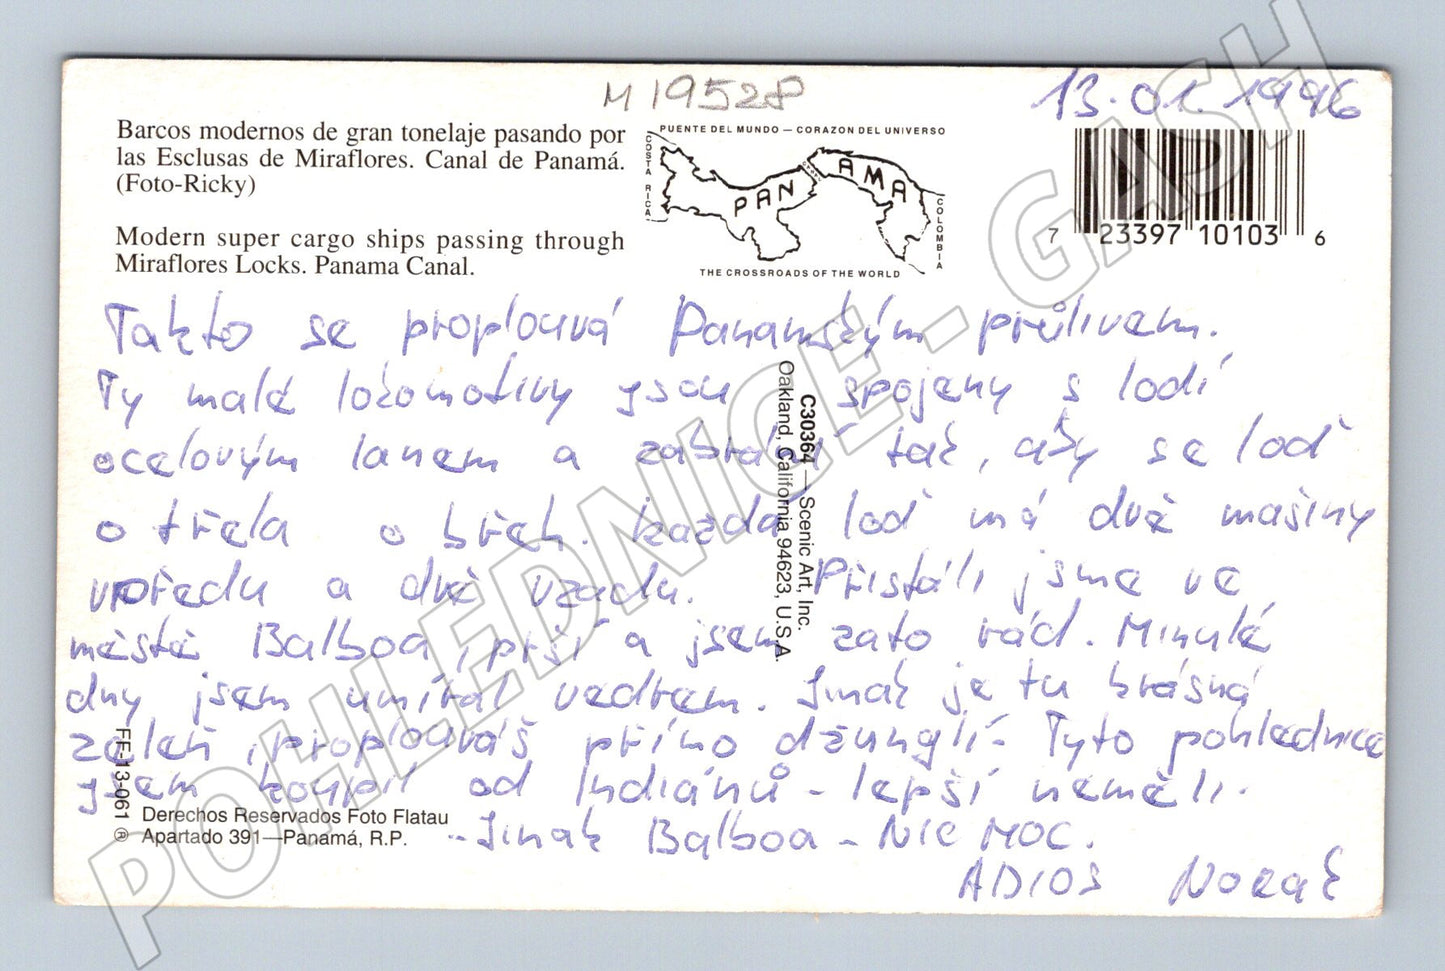 M 19528
13.01.1996
Barcos modernos de gran tonelaje pasando por
las Esclusas de Miraflores. Canal de Panamá.
(Foto-Ricky)
Modern super cargo ships passing through
Miraflores Locks. Panama Canal.
PUENTE DEL MUNDO — CORAZON DEL UNIVERSO
COSTA RICA
PANAMA
COLOMBIA
THE CROSSROADS OF THE WORLD
7 23397 10103 6
Takto se proplouvá Panamským průlivem.
Ty malé lokomotivy jsou spojeny s lodí
ocelovým lanem a zabrání tak, aby se loď
otřela o břeh. Každá loď má dvě mašiny
vpředu a dvě vzadu. Přistáli jsme ve
městě Balboa, prší a jsem zato rád. Minulé
dny jsem umíral vedrem. Jinak je tu krásná
zeleň, proplouváš přímo džunglí. Tyto pohlednice
jsem koupil od Indiánů - lepší neměli.
- Jinak Balboa - NIC MOC.
ADIOS Novák
C30364 — Scenic Art, Inc.
Oakland, California 94623, U.S.A.
FE-13-061 ®
Derechos Reservados Foto Flatau
Apartado 391—Panamá, R.P.
POHLEDNICE - GASH